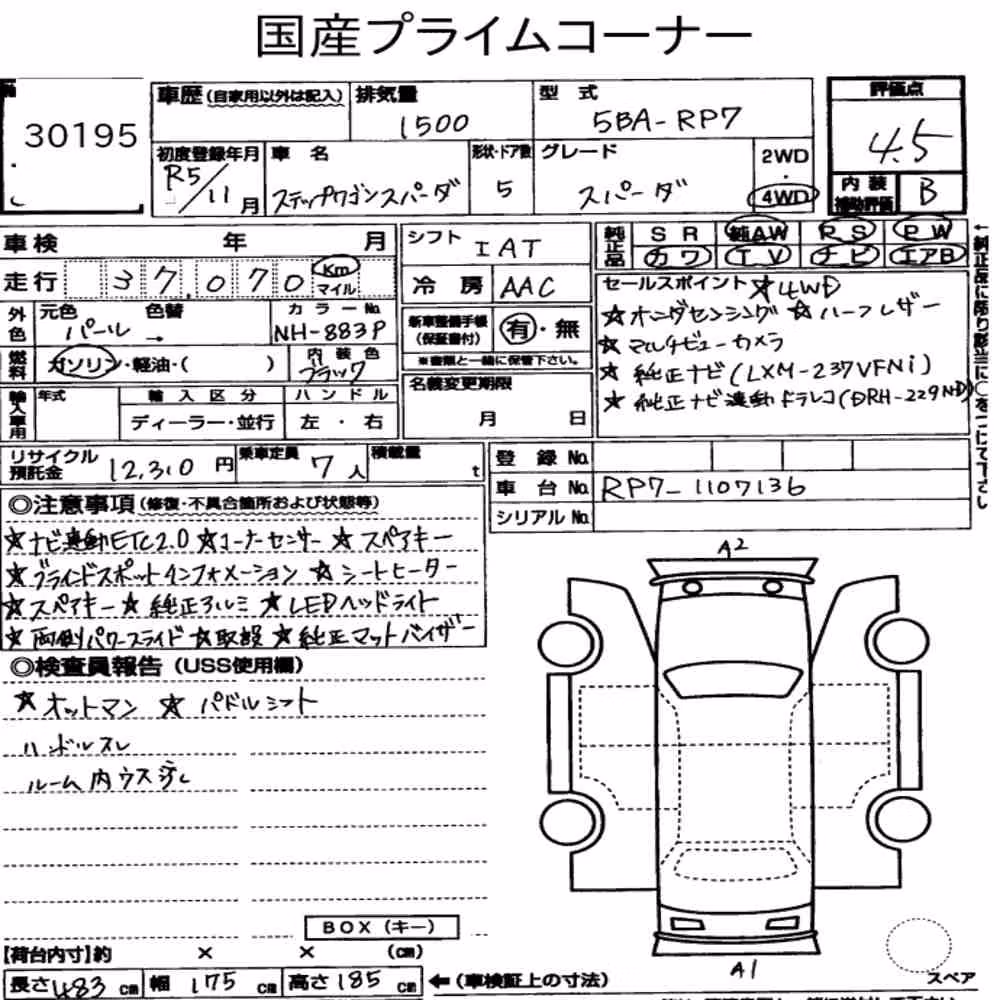 国産プライムコーナー
30195
車歴(自家用以外は記入)
排気量
1500
型式
5BA-RP7
評価点
4.5
初度登録年月
R5/11月
車名
ステップワゴンスパーダ
形状・ドア数
5
グレード
スパーダ
2WD・4WD
内装補助評価
B
車検 年 月
シフト
IAT
純正品
SR 純AW RS PW
カワ TV ナビ エアB
走行 37,070 Km マイル
冷房
AAC
セールスポイント ☆4WD
☆ホンダセンシング ☆ハーフレザー
☆マルチビューカメラ
☆純正ナビ(LXM-237VFNi)
☆純正ナビ連動ドラレコ(DRH-229ND)
外色
元色 色替
パール →
カラーNo
NH-883P
新車整備手帳(保証書付)
有・無
※書類と一緒に保管下さい。
燃料
ガソリン・軽油・( )
内装色
ブラック
名義変更期限
月 日
輸入車用
年式
輸入区分
ディーラー・並行
ハンドル
左・右
リサイクル預託金
12,310円
乗車定員
7人
積載量
t
登録No.
車台No.
RP7-1107136
シリアルNo.
◎注意事項(修復・不具合箇所および状態等)
☆ナビ連動ETC2.0 ☆コーナーセンサー ☆スペアキー
☆ブラインドスポットインフォメーション ☆シートヒーター
☆スペアキー ☆純正アルミ ☆LEDヘッドライト
☆両側パワースライド ☆取説 ☆純正マットバイザー
◎検査員報告(USS使用欄)
☆オットマン ☆パドルシフト
ハンドルスレ
ルーム内ウス汚レ
A2
A1
BOX(キー)
【荷台内寸】約 × × (cm)
長さ483cm 幅175cm 高さ185cm ←(車検証上の寸法)
スペア